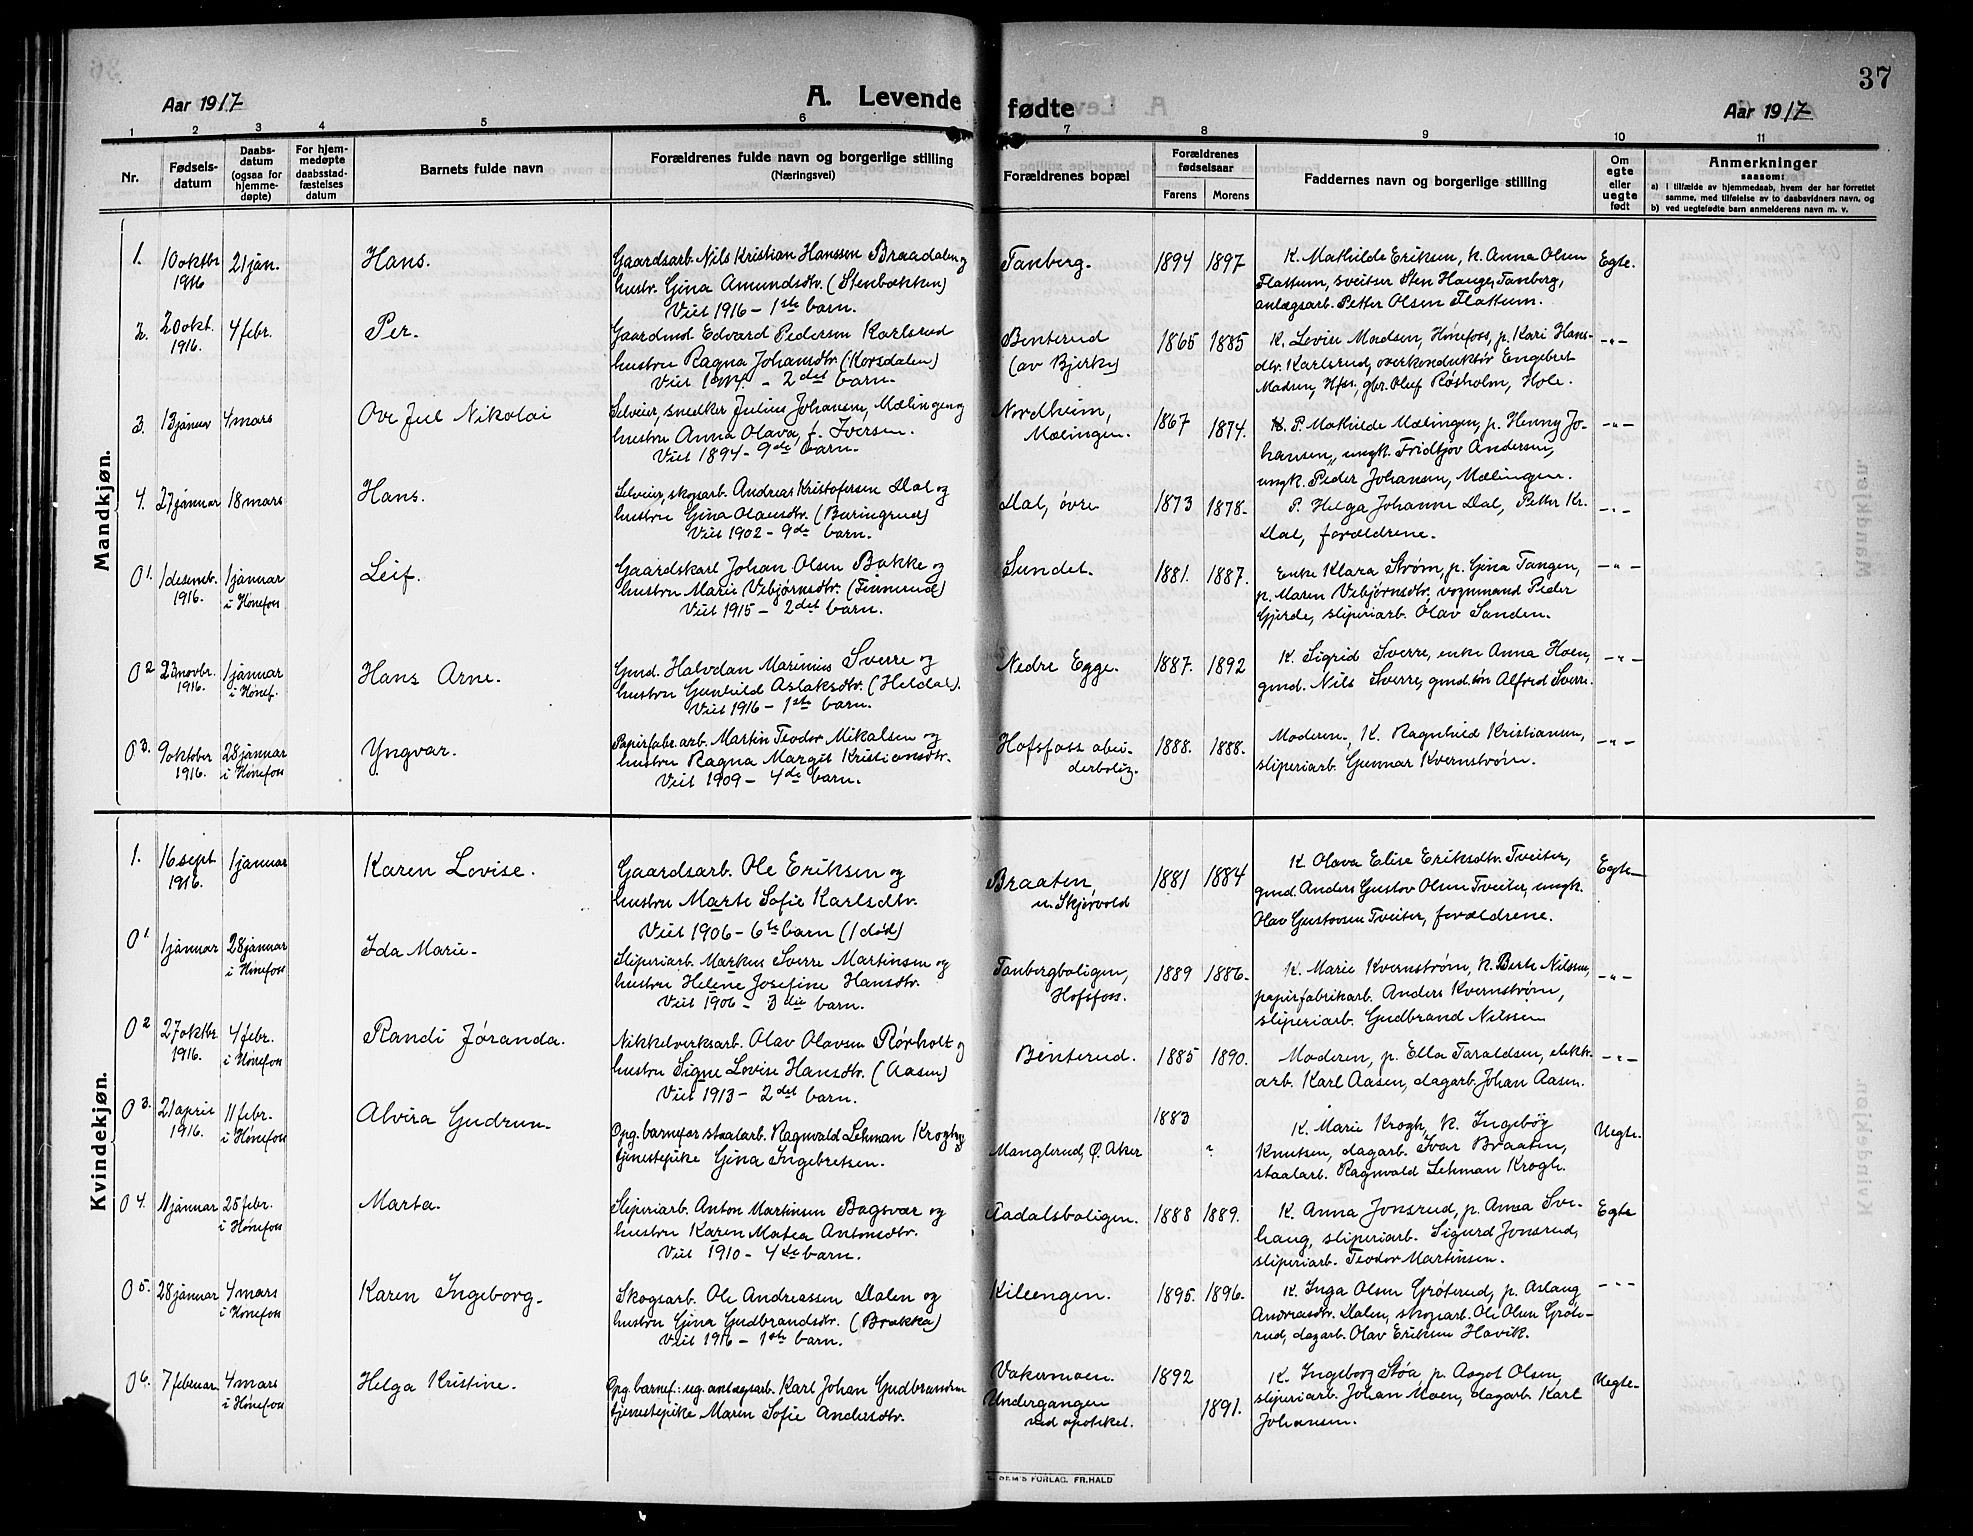 37
Aar 1917
A. Levende fødte
Aar 1917
1 2 3 4 5 6 7 8 9 10 11
Nr.
Fødsels-
datum
Daabs-
datum
(ogsaa for
hjemme-
døpte)
For hjem-
medøpte
daabsstad-
fæstelses
datum
Barnets fulde navn
Forældrenes fulde navn og borgerlige stilling
(Næringsvei)
Forældrenes bopæl
Forældrenes
fødselsaar
Farens Morens
Faddernes navn og borgerlige stilling
Om
egte
eller
uegte
født
Anmerkninger
saasom:
a) I tilfælde av hjemmedaab, hvem der har forrettet
samme, med tilføielse av to daabsvidners navn, og
b) ved uegtefødte barn anmelderens navn m. v.
Mandkjøn.
1. 10 oktbr 1916 21 jan. Hans.
Gaardsarb. Nils Kristian Hanssen Braadalen og
hustr. Gina Amundsdtr. (Stenbækken)
Viet 1916 - 1ste barn.
Tanberg. 1894 1897
K. Mathilde Eriksen, k. Anna Olsen
Flattum, sveitser Sten Hauge, Tanberg,
anlægsarb. Petter Olsen Flattum.
Egte.
2. 20 okt. 1916. 4 febr. Per.
Gaardmd. Edvard Pedersen Karlsrud
hustru Ragna Johansdtr. (Korsdalen)
Viet 1914. - 2det barn.
Benterud
(av Bjerke)
1865 1885
K. Levise Madsen, Hønefoss, p. Kari Hans-
dtr. Karlsrud, overkonduktør Engebret
Madsen, Hfss, gbr. Oluf Røsholm, Hole.
-"-
3. 13 januar 4 mars Ove Juel Nikolai
Selveier, snedker Julius Johansen, Mælingen og
hustru Anna Olava f. Iversen.
Viet 1894 - 9de barn.
Nordheim,
Mælingen.
1867 1874.
K. P. Mathilde Mælingen, p. Henny Jo-
hansen, ungk. Fridtjov Andersen,
ungk. Peder Johansen, Mælingen.
-"-
4. 27 januar 18 mars Hans.
Selveier, skogarb. Andreas Kristofersen Dal og
hustru Gina Olausdtr. (Buringrud)
Viet 1902 - 9de barn.
Dal, øvre 1873 1878.
P. Helga Johanne Dal, Petter Kr.
Dal, forældrene.
-"-
01. 1 desemb. 1916. 1 januar i Hønefoss Leif.
Gaardskarl Johan Olsen Bakke og
hustru Marie Vebjørnsdtr. (Finnerud)
Viet 1915 - 2det barn.
Sundet. 1881. 1887.
Enke Klara Strøm, p. Gina Tangen,
p. Maren Vebjørnsdtr, vognmand Peder
Gjerde, sliperiarb. Olav Sanden.
-"-
02 23 novbr. 1916. 1 januar i Hønef. Hans Arne.
Gmd. Halvdan Marinius Sverre og
hustru Gunhild Aslaksdtr. (Heldal).
Viet 1916 - 1ste barn.
Nedre Egge. 1887. 1892
K. Sigrid Sverre, enke Anna Hoen,
gmd. Nils Sverre, gmd.søn Alfred Sverre.
-"-
03. 9 oktober 1916. 28 januar i Hønefoss Yngvar.
Papirfabr. arb. Martin Teodor Mikalsen og
hustru Ragna Margit Kristiansdtr.
Viet 1909 - 4de barn.
Hofsfoss abei-
derbolig.
1888. 1888.
Moderen, K. Ragnhild Kristiansen,
sliperiarb. Gunnar Kvernstrøm.
-"-
Kvindekjøn.
1. 16 sept 1916. 1 januar Karen Lovise.
Gaardsarb. Ole Eriksen og
hustru Marte Sofie Karlsdtr.
Viet 1906 - 6te barn (1 død)
Braaten,
u. Skjørvold
1881 1884
K. Olava Elise Eriksdtr. Tveiter,
gmd. Anders Gustav Olsen Tveiter, ungk.
Olav Gustavsen Tveiter, forældrene.
Egte
01 1 januar 28 januar i Hønefoss Ida Marie.
Sliperiarb. Markus Sverre Martinsen og
hustru Helene Josefine Hansdtr.
Viet 1906 - 3die barn.
Tanbergboligen,
Hofsfoss.
1889 1886.
K. Marie Kvernstrøm, K. Berte Nilssen,
papirfabrikarb. Anders Kvernstrøm,
sliperiarb. Gudbrand Nilssen
-"-
02 27 oktbr. 1916. 4 febr. i Hønefoss Randi Jøranda.
Nikkelverksarb. Olav Olavsen Rørholt og
hustru Signe Lovise Hansdtr. (Aasen)
Viet 1913 - 2det barn.
Benterud. 1885 1890.
Moderen, p. Ella Taraldsen, elektr.
arb. Karl Aasen, dagarb. Johan Aasen.
-"-
03. 21 april 1916. 11 febr. i Hønefoss Alvira Gudrun.
Opg. barnefar staalarb. Ragnvald Lehman Krogh og
tjenestepike Gina Ingebretsen.
Manglerud, Ø. Aker
1883 ?
K. Marie Krogh, K. Ingebøg
Knutsen, dagarb. Ivar Braaten,
staalarb. Ragnvald Lehman Krogh.
Uegte.
04. 11 januar 25 febr. i Hønefoss Marta.
Sliperiarb. Anton Martinsen Bagsvar og
hustru Karen Matea Antonsdtr.
Viet 1910 - 4de barn.
Aadalsboligen. 1888 1889.
K. Anna Jonsrud, p. Anna Sve-
haug, sliperiarb. Sigurd Jonsrud,
sliperiarb. Teodor Martinsen.
Egte
05. 28 januar 4 mars i Hønefoss Karen Ingeborg.
Skogsarb. Ole Andreassen Dalen og
hustru Gina Gudbrandsdtr. (Brakka)
Viet 1916 - 1ste barn.
Kileengen. 1895. 1896.
K. Inga Olsen Grøterud, p. Aslaug
Andreasdtr. Dalen, skogarb. Ole Olsen Grøte-
rud, dagarb. Olav Eriksen Havik.
-"-
06. 7 februar. 4 mars i Hønefoss Helga Kristine.
Opg. barnef: ug. anlægsarb. Karl Johan Gudbrandsen
tjenestepike Maren Sofie Andersdtr.
Vakermoen.
Undergangen
ved apoteket.
1892
1891.
K. Ingeborg Støa, p. Aagot Olsen,
sliperiarb. Johan Moen, dagarb. Karl
Johansen.
Uegte
SEM'S FORLAG. FR.HALD